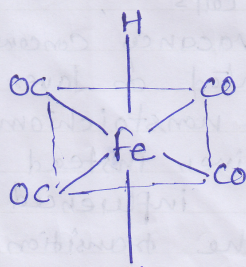 H
OC CO
Fe
OC CO